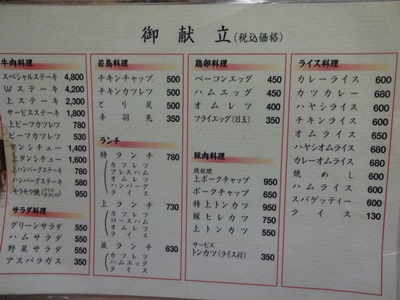 御献立(税込価格)
牛肉料理
スペシャルステーキ 4,800
Wステーキ 4,200
上ステーキ 2,300
サービスステーキ 1,800
上ビーフカツレツ 780
ビーフカツレツ 530
タンシチュー 1,400
上タンシチュー 1,600
上ハンバーグステーキ 780
ハンバーグステーキ 580
950
サラダ料理
グリーンサラダ 550
ハムサラダ 550
野菜サラダ 550
アスパラガス 350
若鳥料理
チキンチャップ 500
チキンカツレツ 500
とり足 500
手羽先 350
ランチ
特ランチ 780
カツレツ
プレスハム
オムレツ
ハンバーグ
ライス
上ランチ 730
カツレツ
ロースハム
オムレツ
ライス
並ランチ 630
カツレツ
ハムエッグ
ライス
鶏卵料理
ベーコンエッグ 450
ハムエッグ 450
オムレツ 400
フライエッグ(目玉) 350
豚肉料理
鉄板焼
上ポークチャップ 950
ポークチャップ 650
特上トンカツ 950
豚ヒレカツ 780
上トンカツ 550
サービス
トンカツ(ライス付) 350
ライス料理
カレーライス 600
カツカレー 680
ハヤシライス 600
チキンライス 600
オムライス 650
ハヤシオムライス 680
カレーオムライス 680
焼めし 600
ハムライス 600
スパゲッティー 600
ライス 130